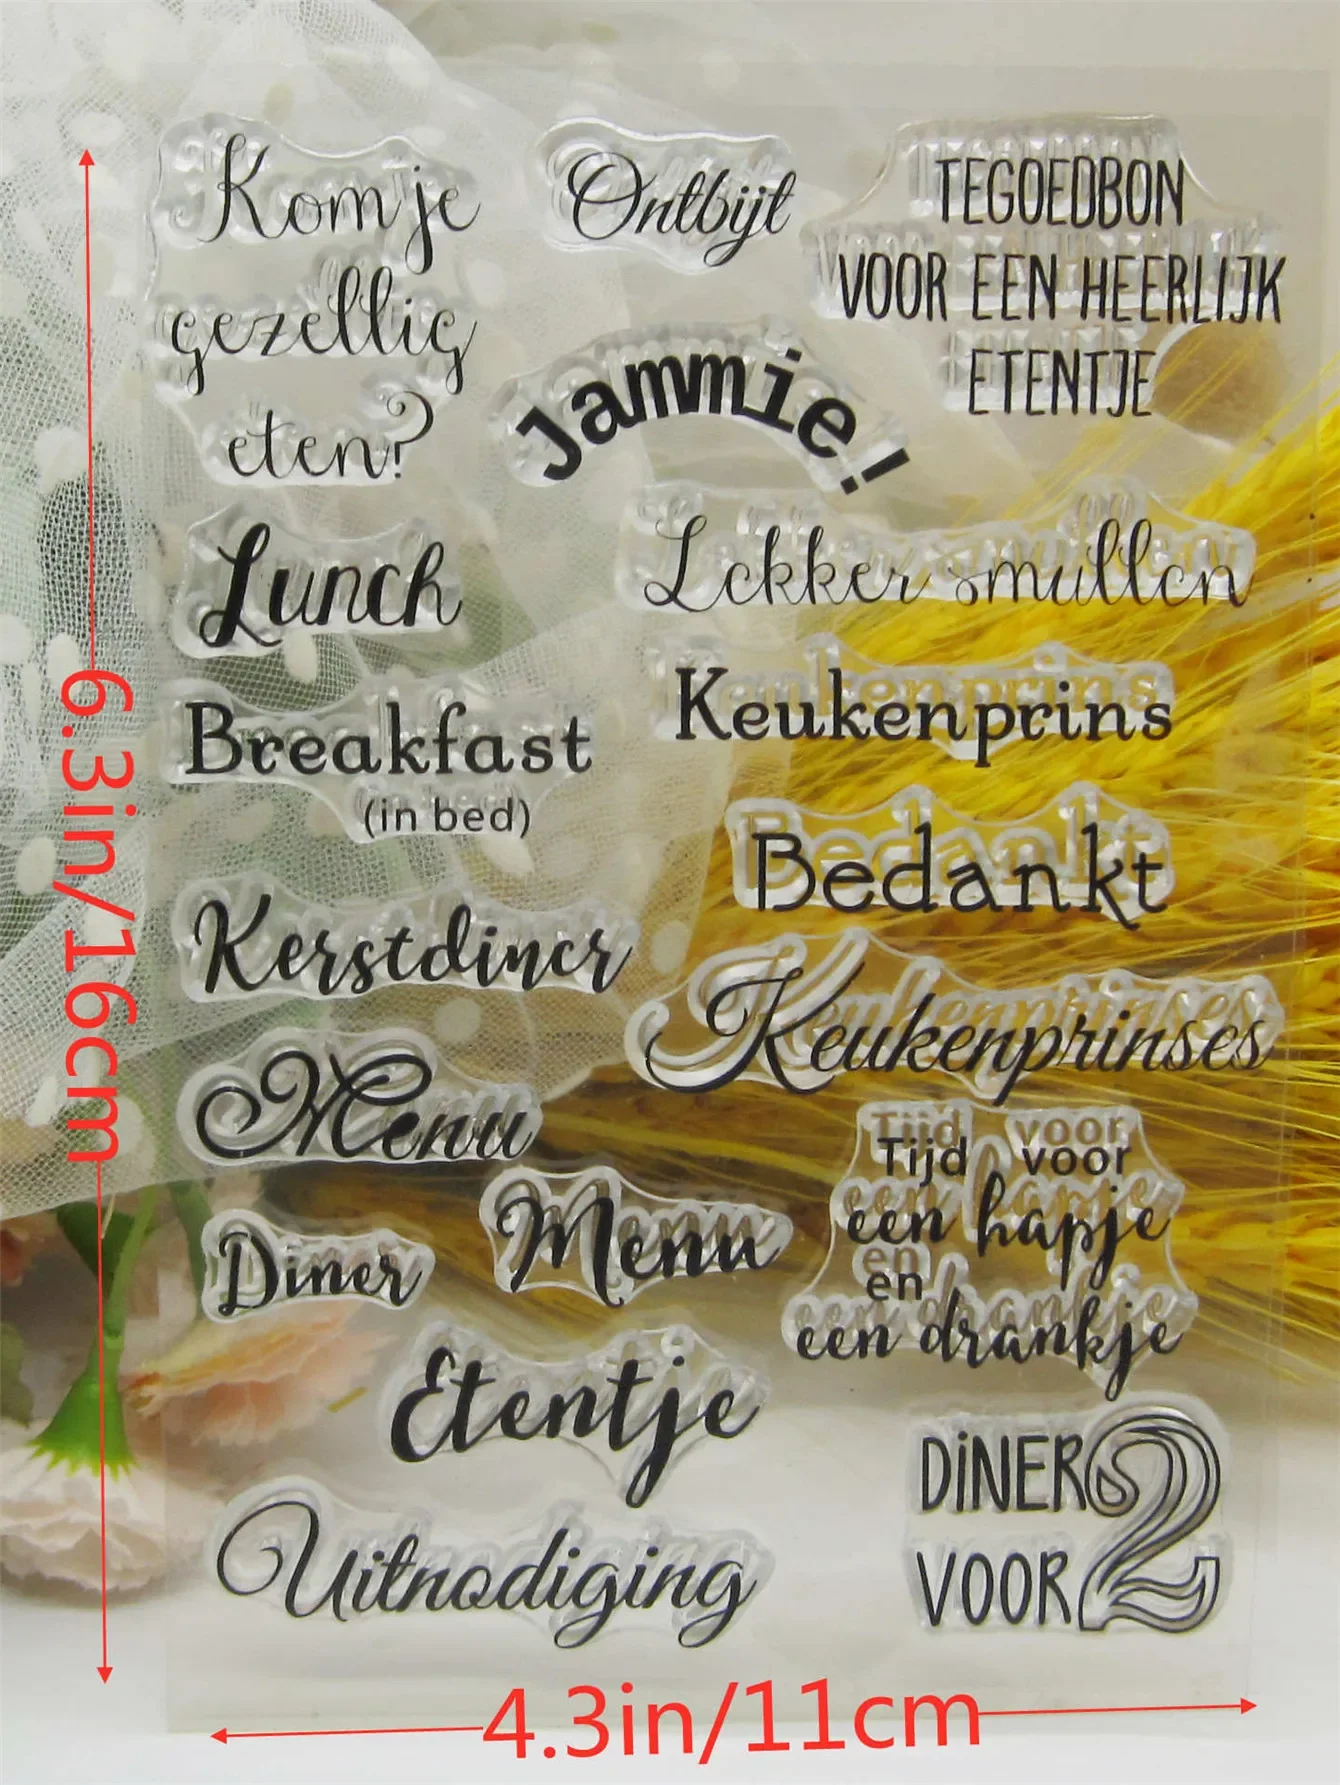 Kom je
gezellig
eten?
Ontbijt
TEGOEDBON
VOOR EEN HEERLIJK
ETENTJE
Jammie!
Lunch
Lekker smullen
Breakfast
(in bed)
Keukenprins
Bedankt
Kerstdiner
Keukenprinses
Menu
Tijd voor
een hapje
en
een drankje
Menu
Diner
Etentje
DiNER
VOOR 2
Uitnodiging
6.3in/16cm
4.3in/11cm